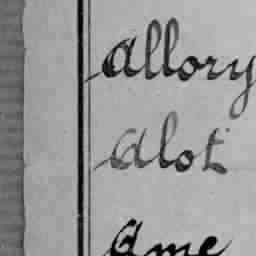 Allory
Alot
Ame